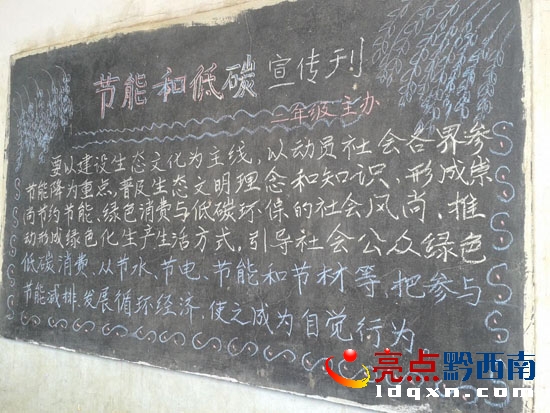 节能和低碳宣传刊
二年级主办
要以建设生态文化为主线，以动员社会各界参
节能降为重点，普及生态文明理念和知识，形成崇
尚节约节能、绿色消费与低碳环保的社会风尚，推
动形成绿色化生产生活方式，引导社会公众绿色
低碳消费、从节水、节电、节能和节材等，把参与
节能减排、发展循环经济，使之成为自觉行为
亮点黔西南
ldqxn.com